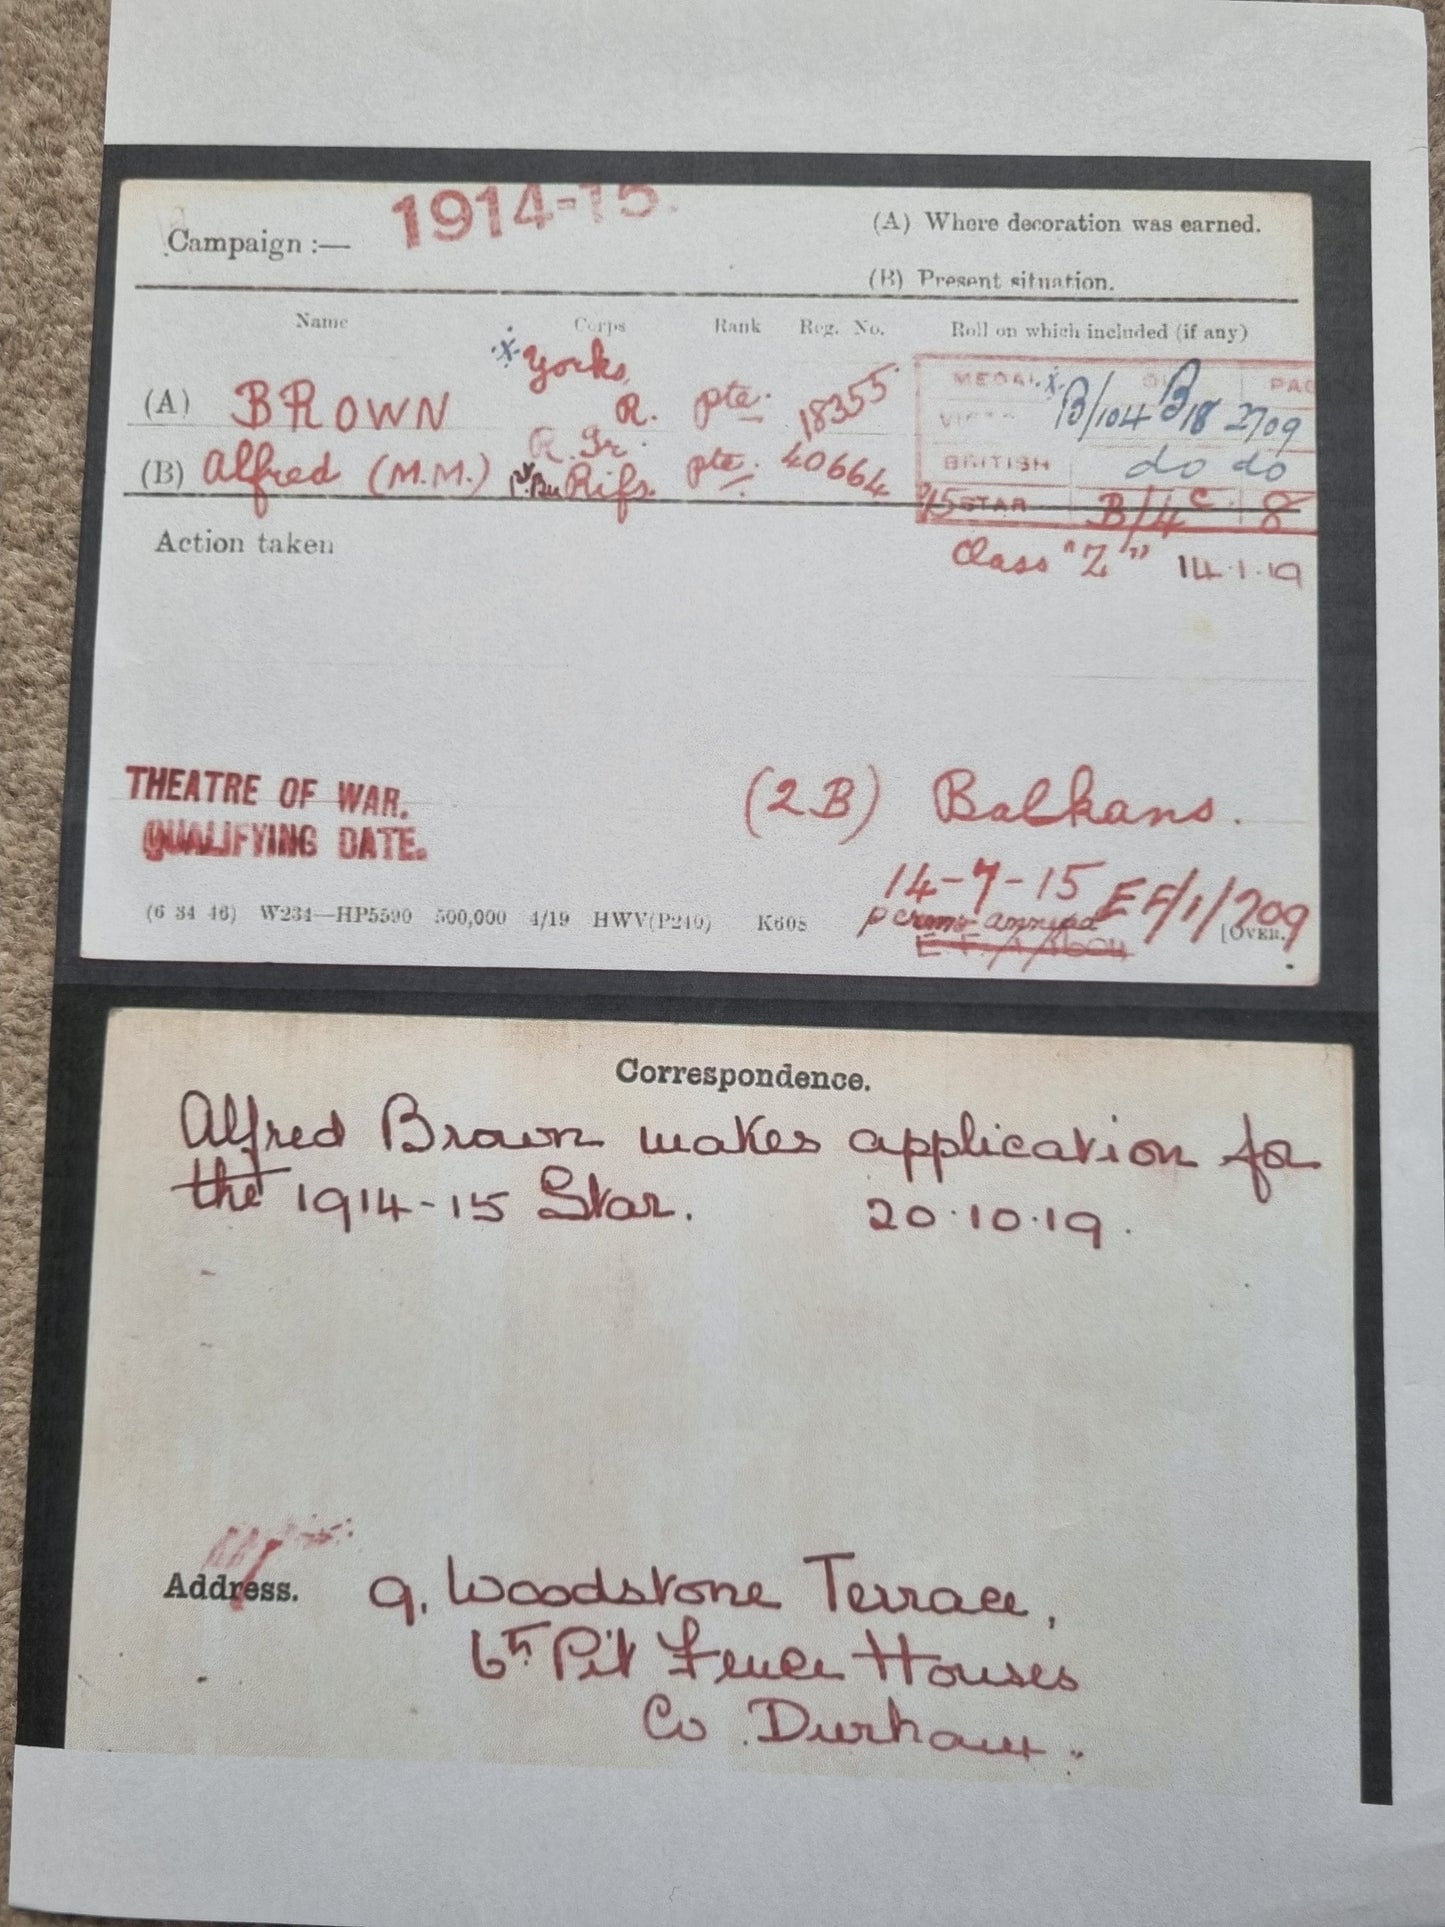 Campaign :— 1914-15.
(A) Where decoration was earned.
(B) Present situation.
Name Corps Rank Reg. No. Roll on which included (if any)
(A) BROWN x Yorks. R. Pte. 18355
(B) Alfred (M.M.) R. Ir. Rifs. Pte. 40664
MEDAL x B/104 B18 2709
BRITISH do do
15 STAR B/4 C 8
Action taken
Class "Z" 14.1.19
THEATRE OF WAR. (2B) Balkans.
QUALIFYING DATE. 14-7-15 EF/1/209
(6 34 46) W234—HP5590 500,000 4/19 HWV(P240) K608 [OVER.
Correspondence.
Alfred Brown makes application for
the 1914-15 Star. 20.10.19.
Address. 9, Woodstone Terrace,
6th Pit Fence Houses
Co Durham.